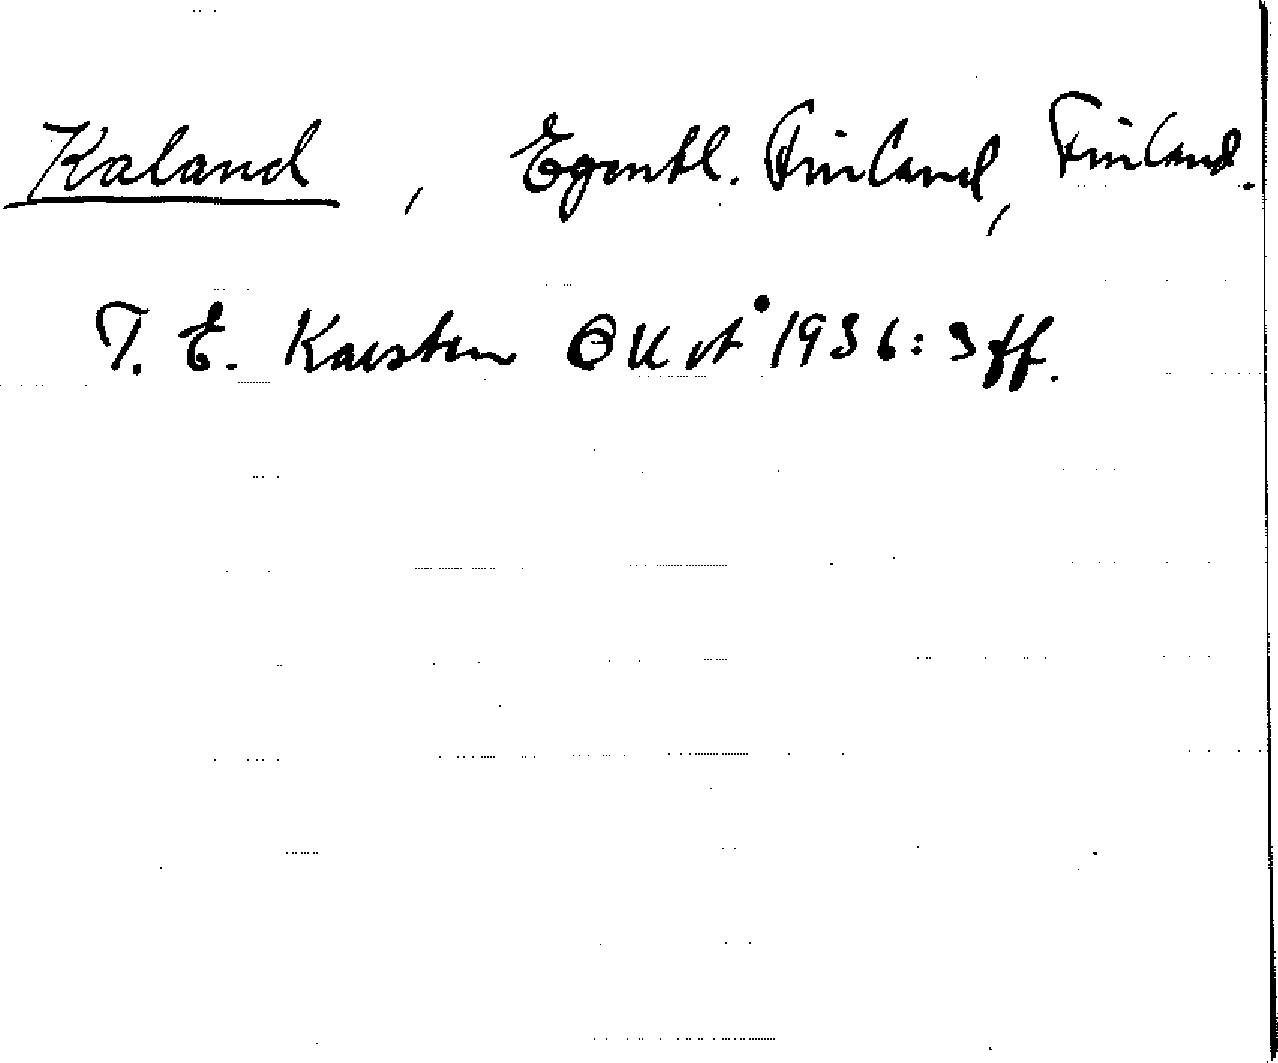 Kaland, Egentl. Finland, Finland.
T. E. Karsten 1936: 3 ff.